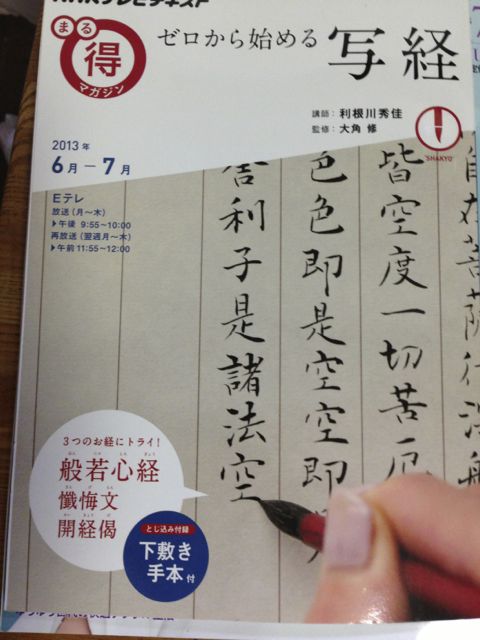 NHKテレビテキスト
まる
得
マガジン
ゼロから始める 写経
講師：利根川秀佳
監修：大角 修
SHAKYO
2013年
6月－7月
Eテレ
放送（月～木）
▶午後 9:55～10:00
再放送（翌週月～木）
▶午前11:55～12:00
皆空度一切苦厄
色色即是空空即
舎利子是諸法空
3つのお経にトライ！
はんにゃしんぎょう
般若心経
さんげもん
懺悔文
かいきょうげ
開経偈
とじ込み付録
下敷き
手本付